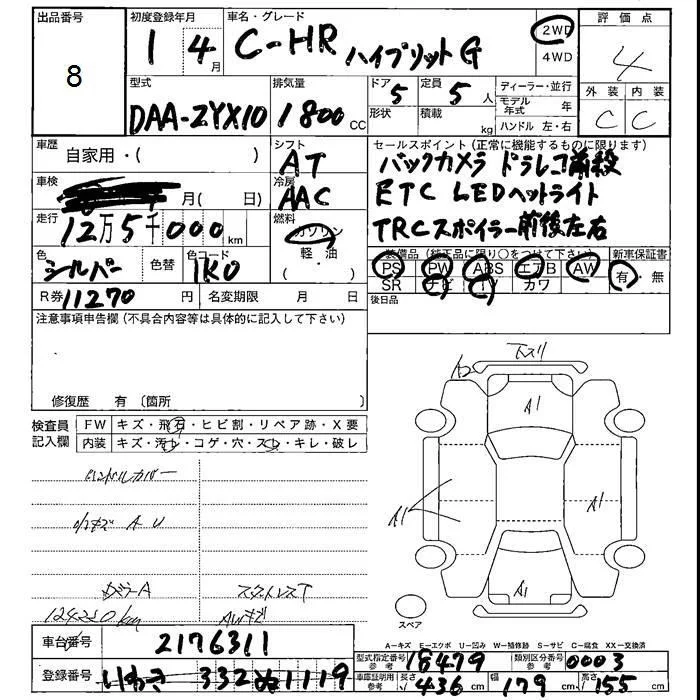 出品番号
8
初度登録年月
1 4月
車名・グレード
C-HR ハイブリットG
2WD
4WD
評価点
4
外装 内装
C C
型式
DAA-ZYX10
排気量
1800cc
ドア
5
定員
5人
形状
積載
kg
ディーラー・並行
モデル年式 年
ハンドル 左・右
車歴
自家用・( )
シフト
AT
車検
月( 日)
冷房
AAC
走行
12万5千000km
燃料
ガソリン
軽・油
( )
色
シルバー
色替
色コード
1K0
R券 11270円
名変期限 月 日
セールスポイント(正常に機能するものに限ります)
バックカメラ ドラレコ前殺
ETC LEDヘットライト
TRCスポイラー前後左右
装備品(純正品に限り○をつけて下さい)
PS PW ABS エアB AW
SR ナビ TV カワ
新車保証書
有・無
後日品
注意事項申告欄(不具合内容等は具体的に記入して下さい)
修復歴 有〔箇所 〕
検査員記入欄
FW キズ・飛石・ヒビ割・リペア跡・X要
内装 キズ・汚れ・コゲ・穴・スレ・キレ・破レ
ハンドルカバー
A U
124250km
AWキズ
下スリ
A1
A1
A1
A1
スペア
車台番号
2176311
登録番号
いわき 332 ぬ1119
A－キズ E－エクボ U－凹み W－補修跡 S－サビ C－腐食 XX－交換済
型式指定番号 参考
18479
類別区分番号 参考
0003
車庫証明用 参考
長さ 436cm
幅 179cm
高さ 155cm